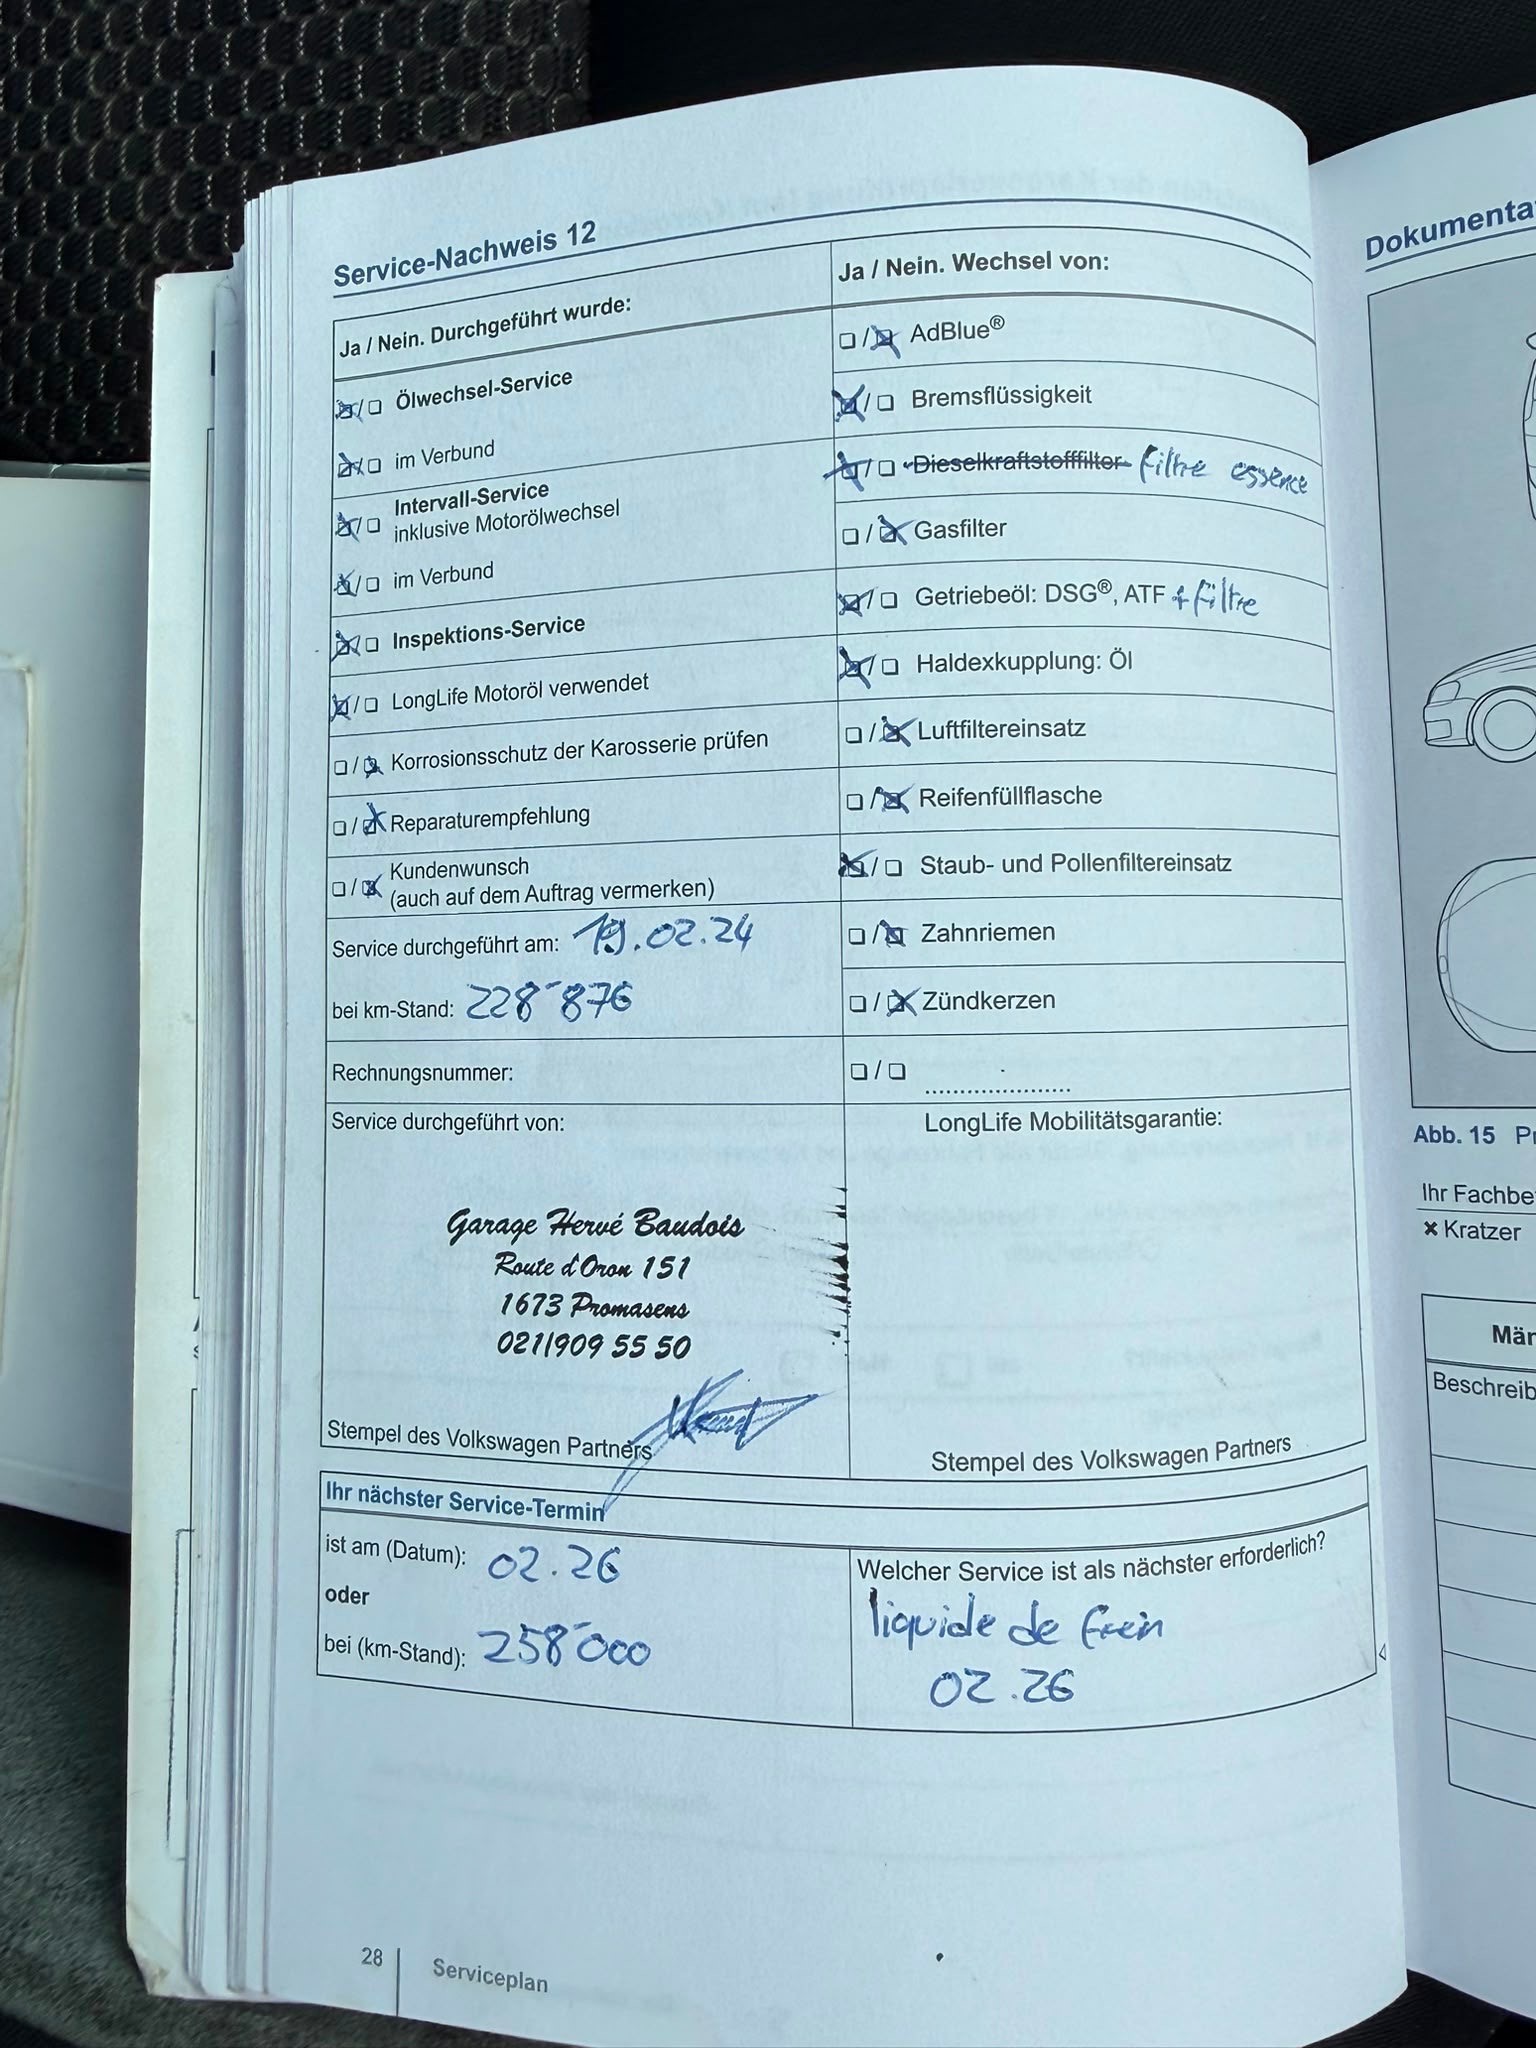 Service-Nachweis 12
Ja / Nein. Durchgeführt wurde:
Ölwechsel-Service
im Verbund
Intervall-Service
inklusive Motorölwechsel
im Verbund
Inspektions-Service
LongLife Motoröl verwendet
Korrosionsschutz der Karosserie prüfen
Reparaturempfehlung
Kundenwunsch
(auch auf dem Auftrag vermerken)
Service durchgeführt am: 19.02.24
bei km-Stand: 228'876
Rechnungsnummer:
Service durchgeführt von:
Garage Hervé Baudois
Route d'Oron 151
1673 Promasens
021/909 55 50
Stempel des Volkswagen Partners
Ja / Nein. Wechsel von:
AdBlue®
Bremsflüssigkeit
Dieselkraftstofffilter filtre essence
Gasfilter
Getriebeöl: DSG®, ATF + filtre
Haldexkupplung: Öl
Luftfiltereinsatz
Reifenfüllflasche
Staub- und Pollenfiltereinsatz
Zahnriemen
Zündkerzen
LongLife Mobilitätsgarantie:
Stempel des Volkswagen Partners
Ihr nächster Service-Termin
ist am (Datum): 02.26
oder
bei (km-Stand): 258'000
Welcher Service ist als nächster erforderlich?
liquide de frein
02.26
28 Serviceplan
Abb. 15
Ihr
Kratzer